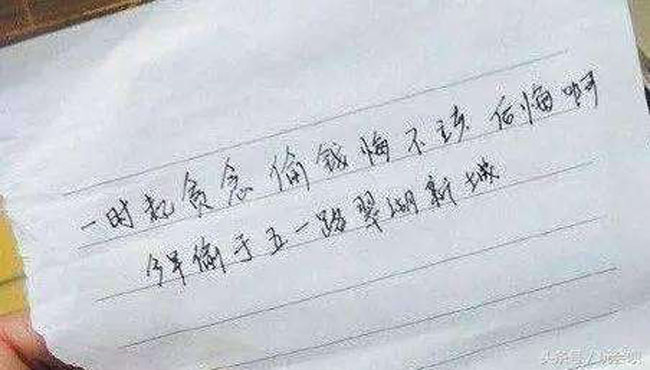 一时起贪念 偷钱悔不该 后悔啊
今早偷于五一路翠湖新城
头条号/